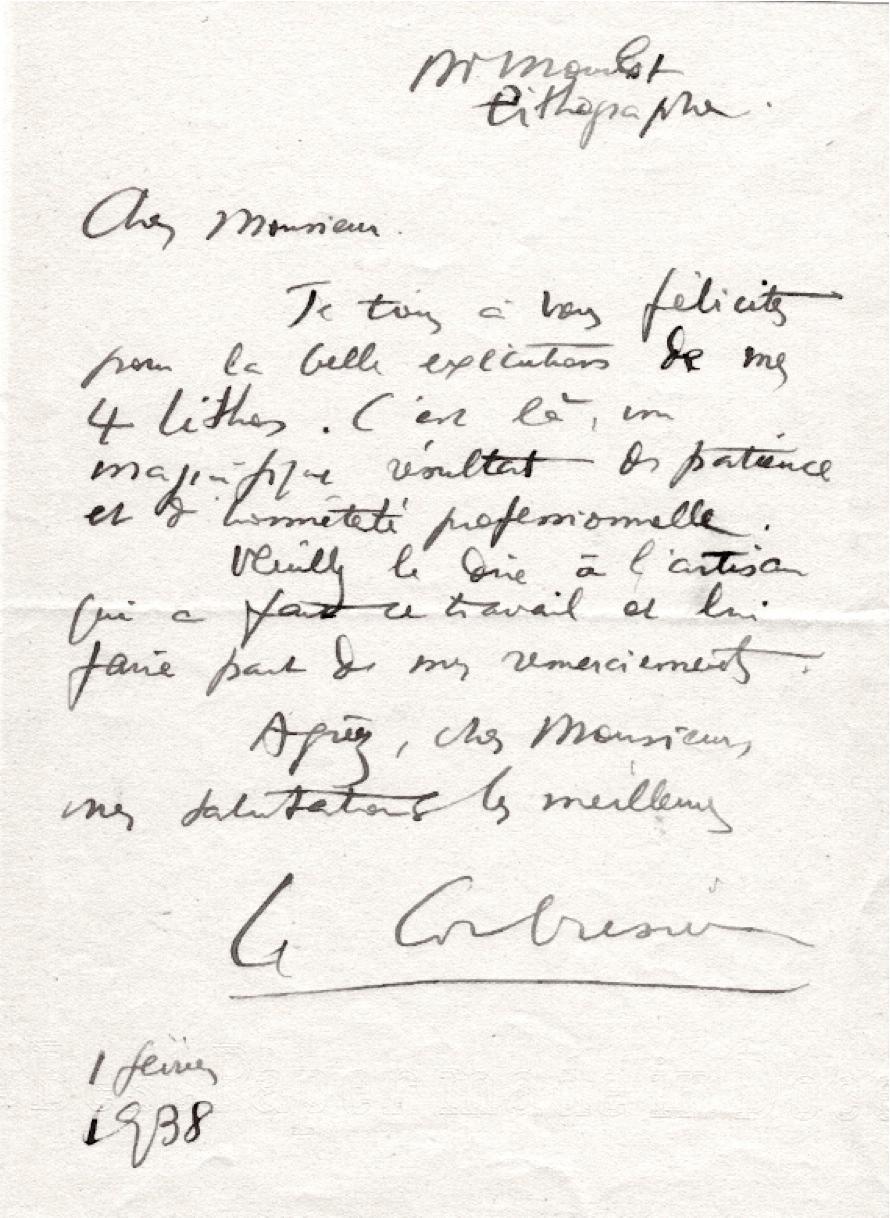 Mr Mourlot
Lithographe.
Cher Monsieur.
Je tiens à vous féliciter
pour la belle exécution de mes
4 lithos. C'est là, un
magnifique résultat de patience
et d'honnêteté professionnelle.
Veuillez le dire à l'artisan
qui a fait ce travail et lui
faire part de mes remerciements.
Agréez, cher Monsieur,
mes salutations les meilleures
Le Corbusier
1 février
1938